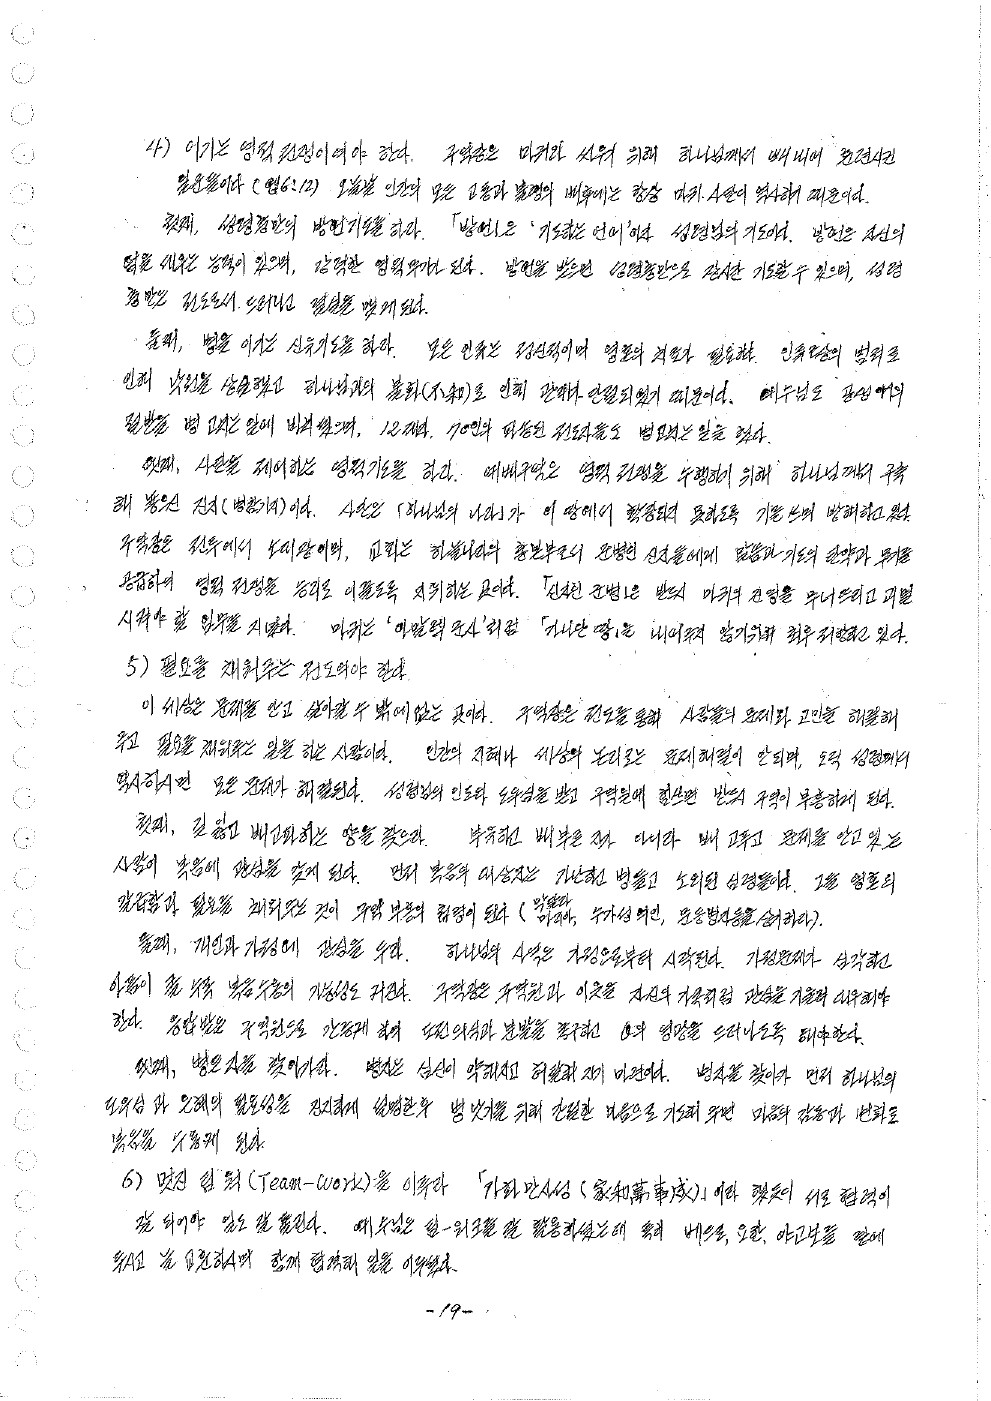 4) 이기는 영적 전쟁이여야 한다. 구역장은 마귀와 싸우기 위해 하나님께서 빼내어 훈련시킨
일꾼들이다 (엡6:12) 오늘날 인간의 모든 고통과 불행의 배후에는 항상 마귀.사탄이 역사하기 때문이다.
첫째, 성령충만의 방언기도를 하라. 「방언」은 '기도하는 언어'이다 성령님의 기도이다. 방언은 자신의
덕을 세우는 능력이 있으며, 강력한 영적무기가 된다. 방언을 받으면 성령충만으로 장시간 기도할 수 있으며, 성령
충만은 전도로서 드러나고 결실을 맺게 된다.
둘째, 병을 이기는 신유기도를 하라. 모든 인류는 정신적이며 영혼의 치료가 필요하다. 인류조상의 범죄로
인해 낙원을 상실했고 하나님과의 불화(不和)로 인해 관계가 단절되었기 때문이다. 예수님도 공생애의
절반을 병 고치는 일에 바치셨으며, 12제자, 70인의 파송된 전도자들도 병고치는 일을 했다.
셋째, 사탄을 제어하는 영적기도를 하라. 예배구역은 영적 전쟁을 수행하기 위해 하나님께서 구축
해 놓으신 진지(병참기지)이다. 사탄은 「하나님의 나라」가 이 땅에서 확장되지 못하도록 기를 쓰며 방해하고 있다.
구역장은 전투에서 소대장이며, 교회는 하늘나라의 후보부로서 훈련된 신자들에게 말씀과 기도의 탄약과 무기를
공급하여 영적 전쟁을 승리로 이끌도록 지휘하는 곳이다. 「신자된 군병」은 반드시 마귀의 진영을 무너뜨리고 괴멸
시켜야 할 임무를 지녔다. 마귀는 '아말렉 군사'처럼 「가나안 땅」을 내어주지 않기위해 최후저항하고 있다.
5) 필요를 채워주는 전도여야 한다
이 세상은 문제를 안고 살아갈 수 밖에 없는 곳이다. 구역장은 전도를 통해 사람들의 문제와 고민을 해결해
주고 필요를 채워주는 일을 하는 사람이다. 인간의 지혜나 세상의 논리로는 문제해결이 안되며, 오직 성령께서
역사하시면 모든 문제가 해결된다. 성령님의 인도와 도우심을 받고 구역일에 힘쓰면 반드시 구역이 부흥하게 된다.
첫째, 길 잃고 배고파하는 양을 찾으라. 부유하고 배부른 자가 아니라 배 고프고 문제를 안고 있는
사람이 복음에 관심을 갖게 된다. 먼저 복음의 대상자는 가난하고 병들고 소외된 심령들이다. 그들 영혼의
갈급함과 필요를 채워주는 것이 구역 부흥의 림명이 된다 (막달라 마리아, 수가성 여인, 문둥병자등을 상기하라).
둘째, 개인과 가정에 관심을 두라. 하나님의 사역은 가정으로부터 시작된다. 가정문제가 심각하고
아픔이 클 수록 복음수용의 가능성도 커진다. 구역장은 구역원과 이웃을 자신의 가족처럼 관심을 기울여 대우해야
한다. 응답받은 구역원으로 간증케 하여 도전의식과 분발을 촉구하고 主의 영광을 드러나도록 해야한다.
셋째, 병든 자를 찾아가라. 병자는 심신이 약해지고 허물어 지기 마련이다. 병자를 찾아가 먼저 하나님의
도우심과 은혜의 필요성을 진지하게 설명한후 병 낫기를 위해 간절한 마음으로 기도해 주면 마음의 감동과 변화로
복음을 수용케 된다
6) 멋진 팀웍(Team-Work)을 이루라 「가화만사성(家和萬事成)」이라 했듯이 서로 협력이
잘 되어야 일도 잘 풀린다. 예수님은 팀-워크를 잘 활용하셨는데 특히 베드로, 요한, 야고보를 곁에
두시고 늘 교훈하시며 함께 협력해 일을 이루셨다.
-19-